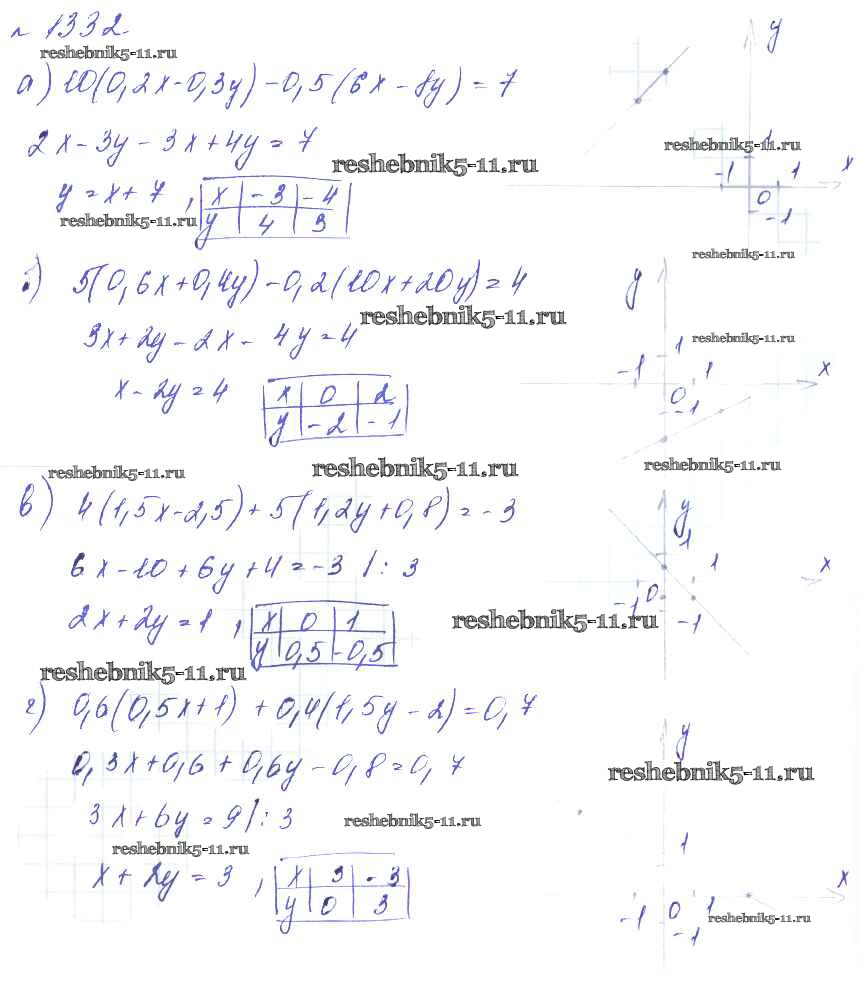 № 1332
reshebnik5-11.ru
а) 10(0,2x-0,3y)-0,5(6x-8y)=7
2x-3y-3x+4y=7
reshebnik5-11.ru
y=x+7, x -3 -4
y 4 3
reshebnik5-11.ru
y
reshebnik5-11.ru
1
-1 1 x
0
-1
reshebnik5-11.ru
б) 5(0,6x+0,4y)-0,2(10x+20y)=4
reshebnik5-11.ru
3x+2y-2x-4y=4
x-2y=4 x 0 2
y -2 -1
y
reshebnik5-11.ru
1
-1 1 x
0
-1
reshebnik5-11.ru
reshebnik5-11.ru
reshebnik5-11.ru
в) 4(1,5x-2,5)+5(1,2y+0,8)=-3
6x-10+6y+4=-3 |:3
2x+2y=1, x 0 1
y 0,5 -0,5
reshebnik5-11.ru
y
1
1 x
-1 0
-1
reshebnik5-11.ru
г) 0,6(0,5x+1)+0,4(1,5y-2)=0,7
0,3x+0,6+0,6y-0,8=0,7
reshebnik5-11.ru
3x+6y=9 |:3
reshebnik5-11.ru
reshebnik5-11.ru
x+2y=3, x 3 -3
y 0 3
y
1
x
-1 0 1
-1
reshebnik5-11.ru